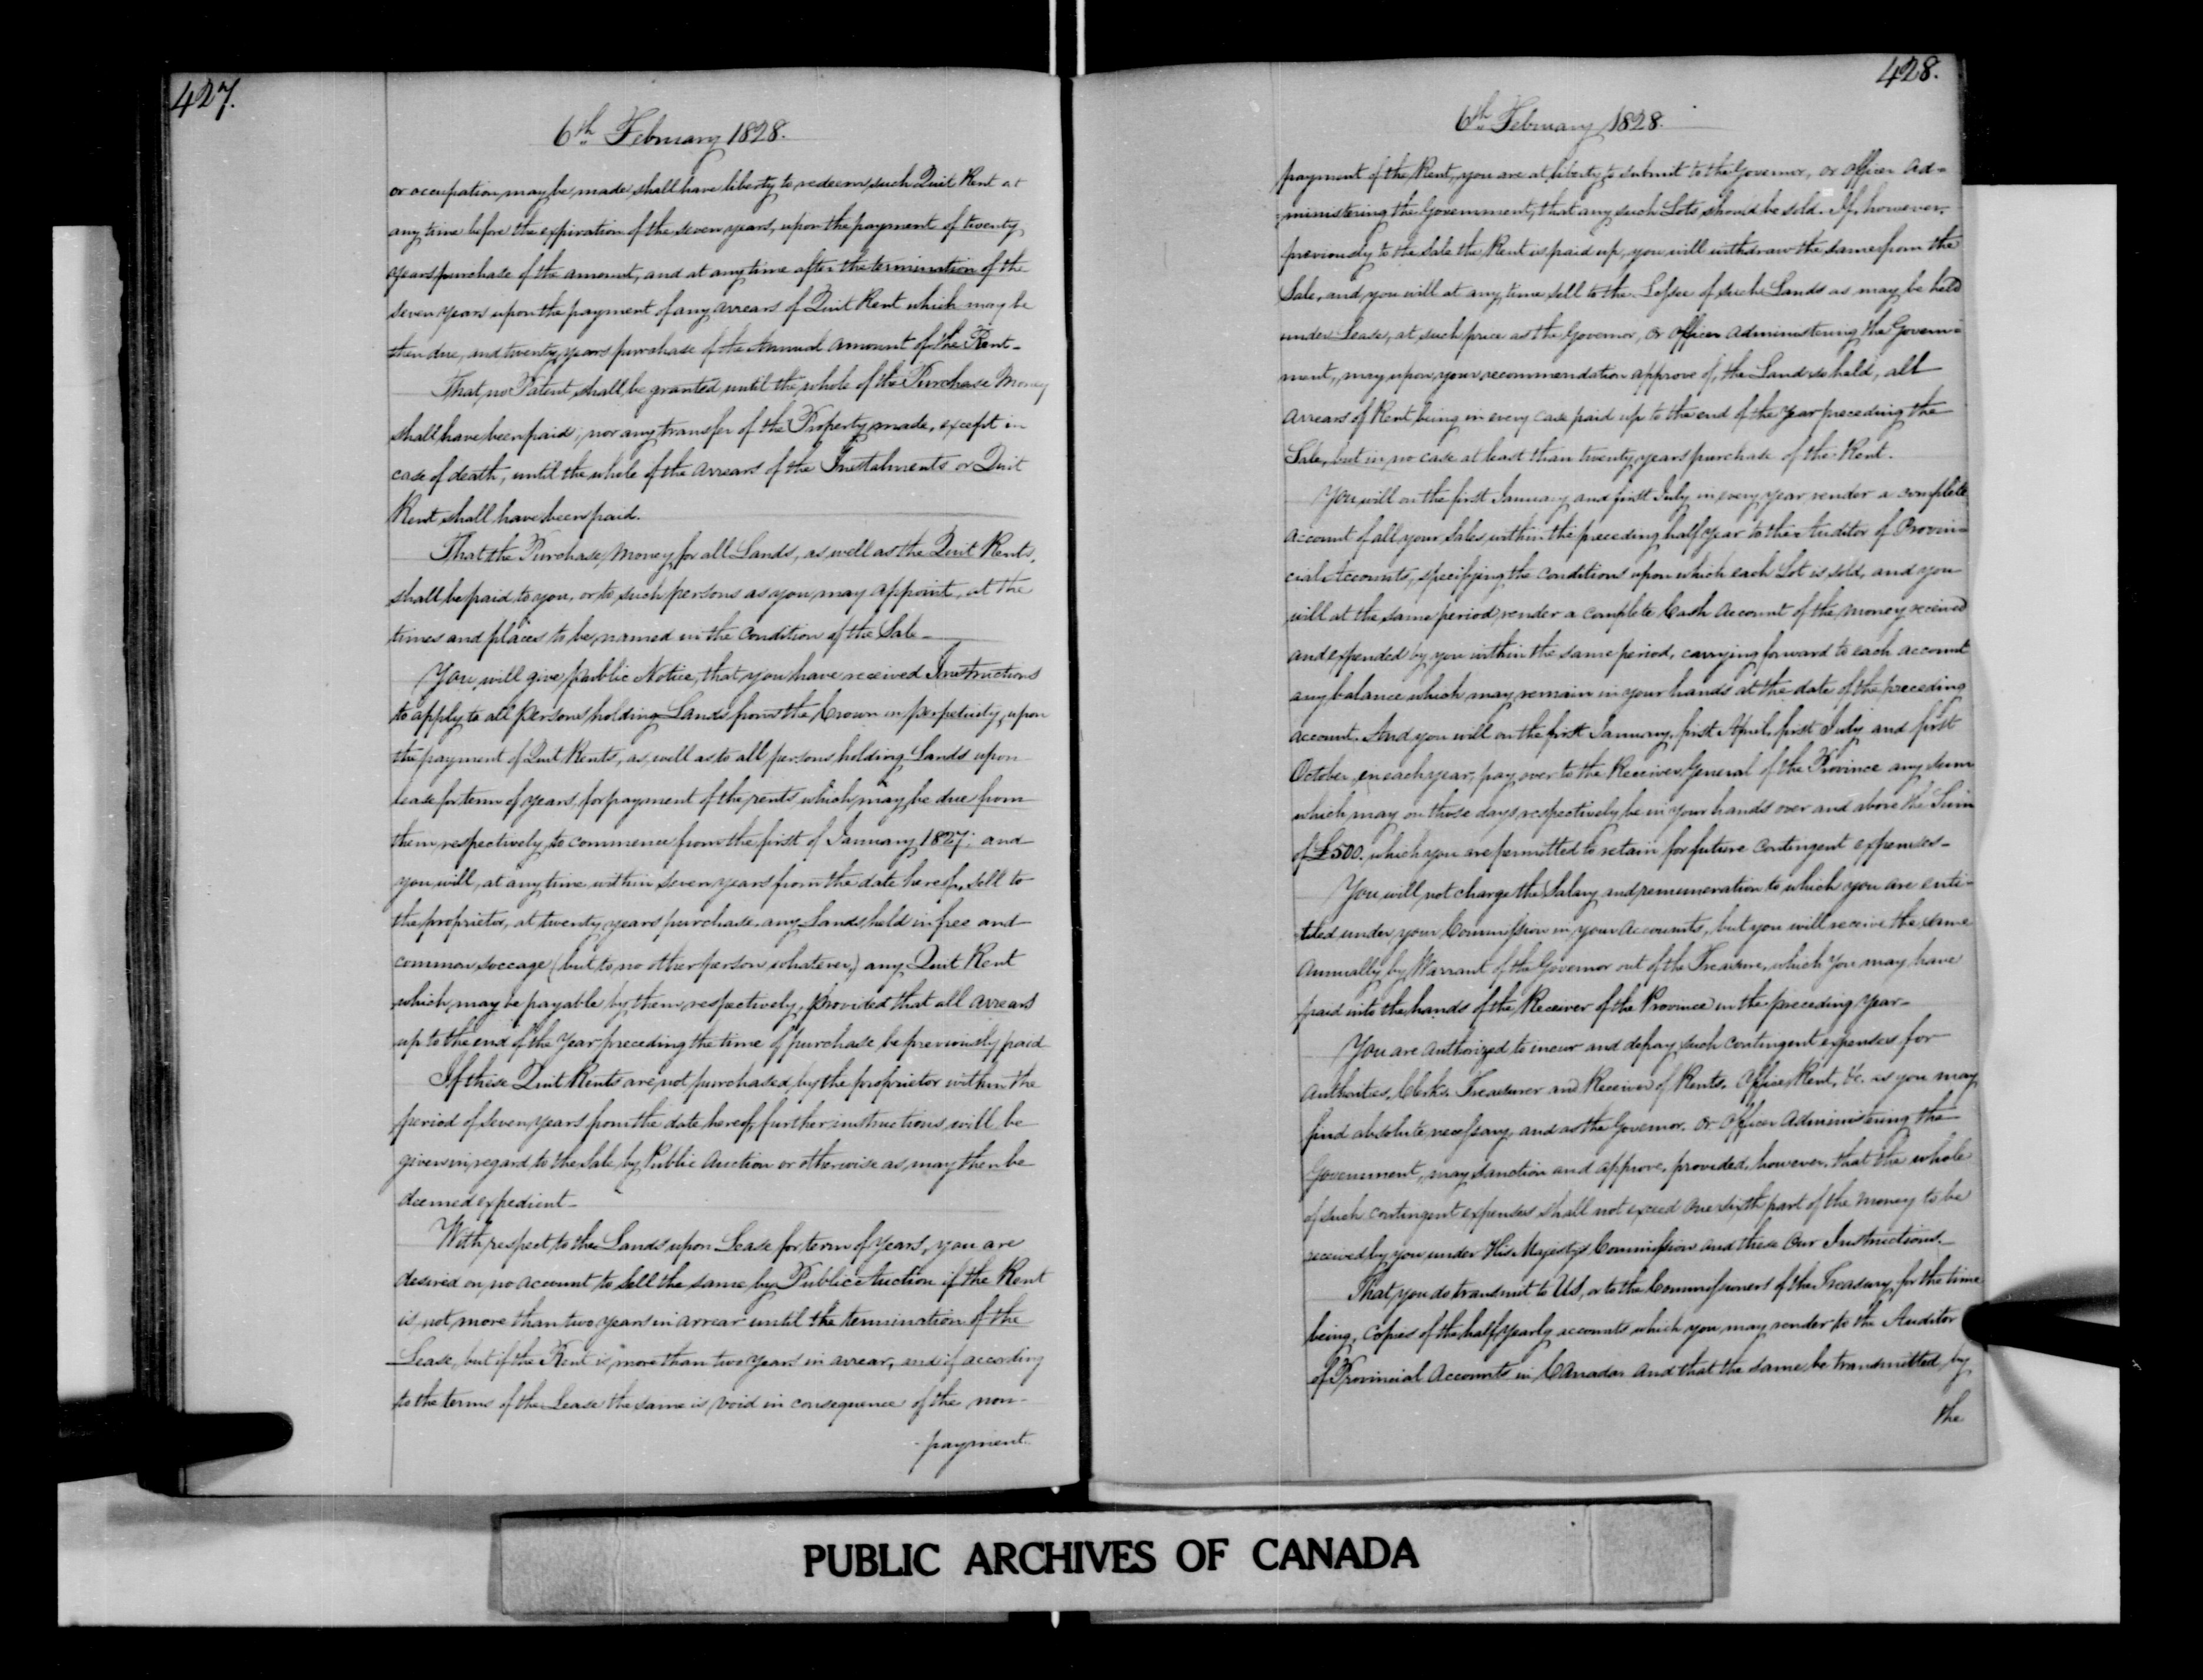 427.
6th February 1828.
or occupation may be made shall have liberty to redeem such Quit Rent at
any time before the expiration of the seven years, upon the payment of twenty
years purchase of the amount, and at any time after the termination of the
seven years upon the payment of any arrears of Quit Rent which may be
then due, and twenty years purchase of the Annual amount of the Rent-
That no Patent shall be granted until the whole of the Purchase Money
shall have been paid; nor any transfer of the Property made, except in
case of death, until the whole of the arrears of the Instalments or Quit
Rent shall have been paid.
That the Purchase Money for all Lands, as well as the Quit Rents,
shall be paid to you, or to such persons as you may appoint, at the
times and places to be named in the Condition of the Sale-
You will give public Notice, that you have received Instructions
to apply to all persons holding Lands from the Crown in perpetuity, upon
the payment of Quit Rents, as well as to all persons holding Lands upon
lease for term of years, for payment of the rents which may be due from
them respectively, to commence from the first of January 1827; and
you will, at any time within seven years from the date hereof, sell to
the proprietor, at twenty years purchase, any Lands held in free and
common soccage (but to no other person whatever,) any Quit Rent
which may be payable by them respectively, provided that all arrears
up to the end of the Year preceding the time of purchase be previously paid
If these Quit Rents are not purchased by the proprietor within the
period of seven years from the date hereof, further instructions will be
given in regard to the Sale by Public Auction or otherwise as may then be
deemed expedient-
With respect to the Lands upon Lease for term of Years, you are
desired on no account to sell the same by Public Auction if the Rent
is not more than two years in arrear until the termination of the
Lease, but if the Rent is more than two years in arrear, and if according
to the terms of the Lease the same is void in consequence of the non-
payment.
428.
6th February 1828.
payment of the Rent, you are at liberty to submit to the Governor, or Officer Ad=
=ministering the Government, that any such Lots should be sold. If, however,
previously to the Sale the Rent is paid up, you will withdraw the same from the
Sale, and you will at any time sell to the Lessee of such Lands as may be held
under Lease, at such price as the Governor, or Officer Administering the Govern=
ment, may upon your recommendation approve of, the Land so held, all
arrears of Rent being in every case paid up to the end of the Year preceding the
Sale, but in no case at least than twenty years purchase of the Rent.
You will on the first January and first July in every year render a complete
account of all your Sales within the preceding half year to the Auditor of Provin=
cial Accounts, specifying the conditions upon which each Lot is sold, and you
will at the same period render a complete Cash Account of the money received
and expended by you within the same period, carrying forward to each account
any balance which may remain in your hands at the date of the preceding
account. And you will on the first January, first April, first July and first
October, in each year, pay over to the Receiver General of the Province any sum
which may on those days respectively be in your hands over and above the Sum
of £500. which you are permitted to retain for future contingent expenses-
You will not charge the Salary and remuneration to which you are enti-
tled under your Commission in your Accounts, but you will receive the same
Annually by Warrant of the Governor out of the Treasure, which You may have
paid into the hands of the Receiver of the Province in the preceding Year-
You are authorized to incur and defray such contingent expenses for
Authorities, Clerks, Treasurer and Receiver of Rents, Office Rent, &c. as you may
find absolute necessary, and as the Governor, or Officer Administering the
Government, may sanction and approve, provided, however, that the whole
of such contingent expenses shall not exceed one sixth part of the Money to be
received by you under His Majesty's Commission and these Our Instructions.
That you do transmit to Us, or to the Commissioners of the Treasury, for the time
being, Copies of the half yearly accounts which you may render to the Auditor
of Provincial Accounts in Canada and that the same be transmitted by
the
PUBLIC ARCHIVES OF CANADA